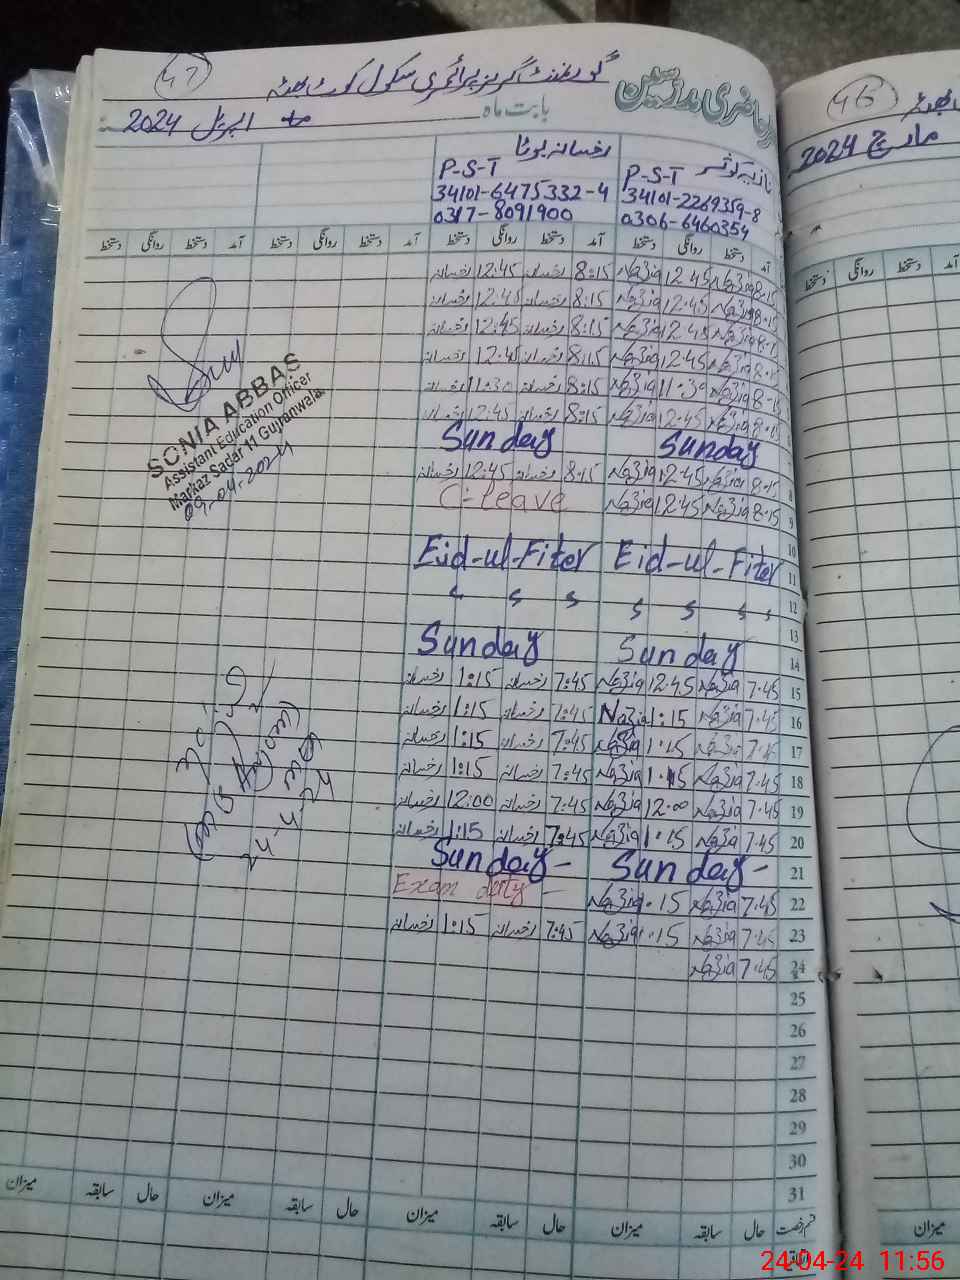 47
حاضری مدرسین گورنمنٹ گرلز پرائمری سکول کوٹ بھٹہ
بابت ماہ ماہ اپریل 2024
نازیہ کوثر
P-S-T
34101-2269359-8
0306-6460354
رخسانہ بوٹا
P-S-T
34101-6475332-4
0317-8091900
آمد دستخط روانگی دستخط آمد دستخط روانگی دستخط آمد دستخط روانگی دستخط آمد دستخط روانگی دستخط
8:15 Nazia 12:45 Nazia 8:15 رخسانہ 12:45 رخسانہ
8:15 Nazia 12:45 Nazia 8:15 رخسانہ 12:45 رخسانہ
8:15 Nazia 12:45 Nazia 8:15 رخسانہ 12:45 رخسانہ
8:15 Nazia 12:45 Nazia 8:15 رخسانہ 12:45 رخسانہ
8:15 Nazia 11:30 Nazia 8:15 رخسانہ 11:30 رخسانہ
8:15 Nazia 12:45 Nazia 8:15 رخسانہ 12:45 رخسانہ
Sunday Sunday
8 8:15 Nazia 12:45 Nazia 8:15 رخسانہ 12:45 رخسانہ
9 8:15 Nazia 12:45 Nazia C-leave
10
11 Eid-ul-Fiter Eid-ul-Fiter
12
13
14 Sunday Sunday
15 7:45 Nazia 12:45 Nazia 7:45 رخسانہ 1:15 رخسانہ
16 7:45 Nazia 1:15 Nazia 7:45 رخسانہ 1:15 رخسانہ
17 7:45 Nazia 1:15 Nazia 7:45 رخسانہ 1:15 رخسانہ
18 7:45 Nazia 1:15 Nazia 7:45 رخسانہ 1:15 رخسانہ
19 7:45 Nazia 12:00 Nazia 7:45 رخسانہ 12:00 رخسانہ
20 7:45 Nazia 1:15 Nazia 7:45 رخسانہ 1:15 رخسانہ
21 Sunday - Sunday -
22 7:45 Nazia 1:15 Nazia Exam duty -
23 7:45 Nazia 1:15 Nazia 7:45 رخسانہ 1:15 رخسانہ
24 7:45 Nazia
25
26
27
28
29
30
31
قسم رخصت حال سابقہ میزان حال سابقہ میزان حال سابقہ میزان حال سابقہ میزان
اتفاقیہ
SONIA ABBAS
Assistant Education Officer
Markaz Sadar 11 Gujranwala
09.04.2024
24-4-24
46
مارچ 2024
آمد دستخط روانگی دستخط
میزان
24-04-24 11:56